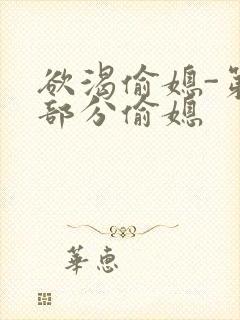 欲渴偷媳-第
部分偷媳
華惠